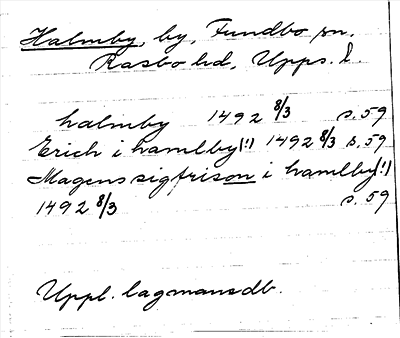 Halmby, by, Fundbo sn.
Rasbo hd, Upps. l.
halmby 1492 8/3 s. 59
Erich i hamlby(!) 1492 8/3 s. 59
Magens sigfrison i hamlby(!)
1492 8/3 s. 59
Uppl. lagmansdb.